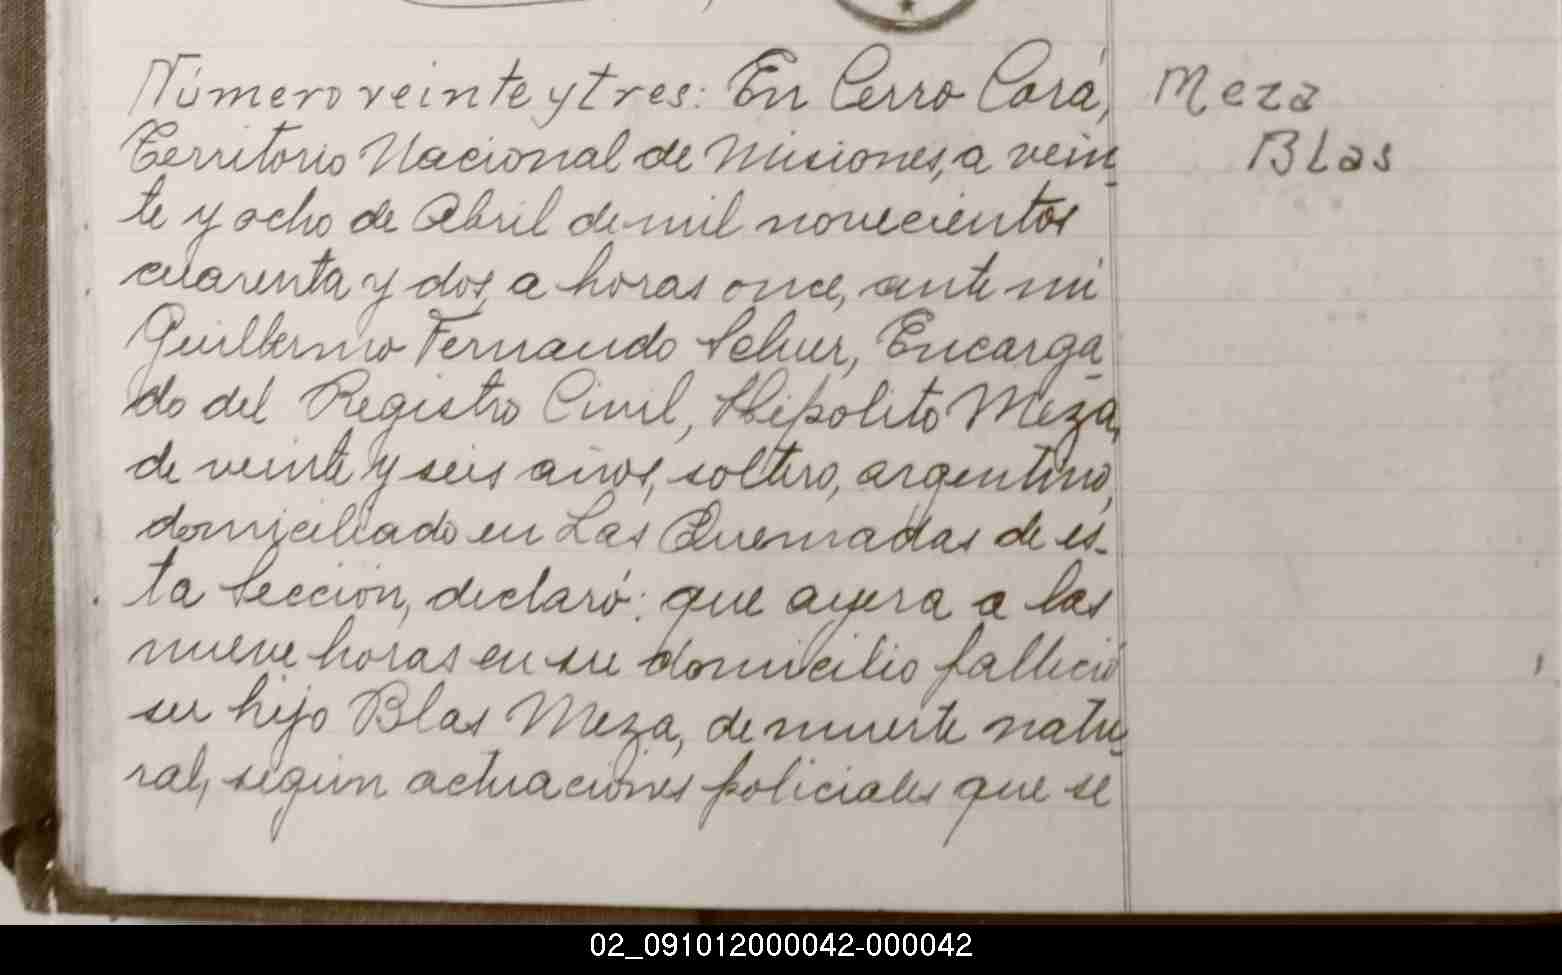 Número veinte y tres: En Cerro Corá,
Territorio Nacional de Misiones, a vein-
te y ocho de Abril de mil novecientos
cuarenta y dos, a horas once, ante mi
Guillermo Fernando Schur, Encarga-
do del Registro Civil, Hipolito Meza,
de veinte y seis años, soltero, argentino,
domiciliado en Las Quemadas de es-
ta Sección, declaró: que ayera a las
nueve horas en su domicilio falleció
su hijo Blas Meza, de muerte natu-
ral, según actuaciones policiales que se
Meza
Blas
02_091012000042-000042